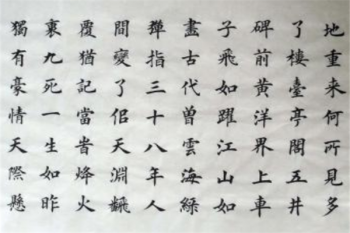 地重来何所見多
了樓臺亭閣五井
碑前黄洋界上車
子飛如躍江山如
畫古代曾雲海綠
彈指三十八年人
間變了佀天淵飜
覆猶記當旹烽火
裏九死一生如昨
獨有豪情天際懸